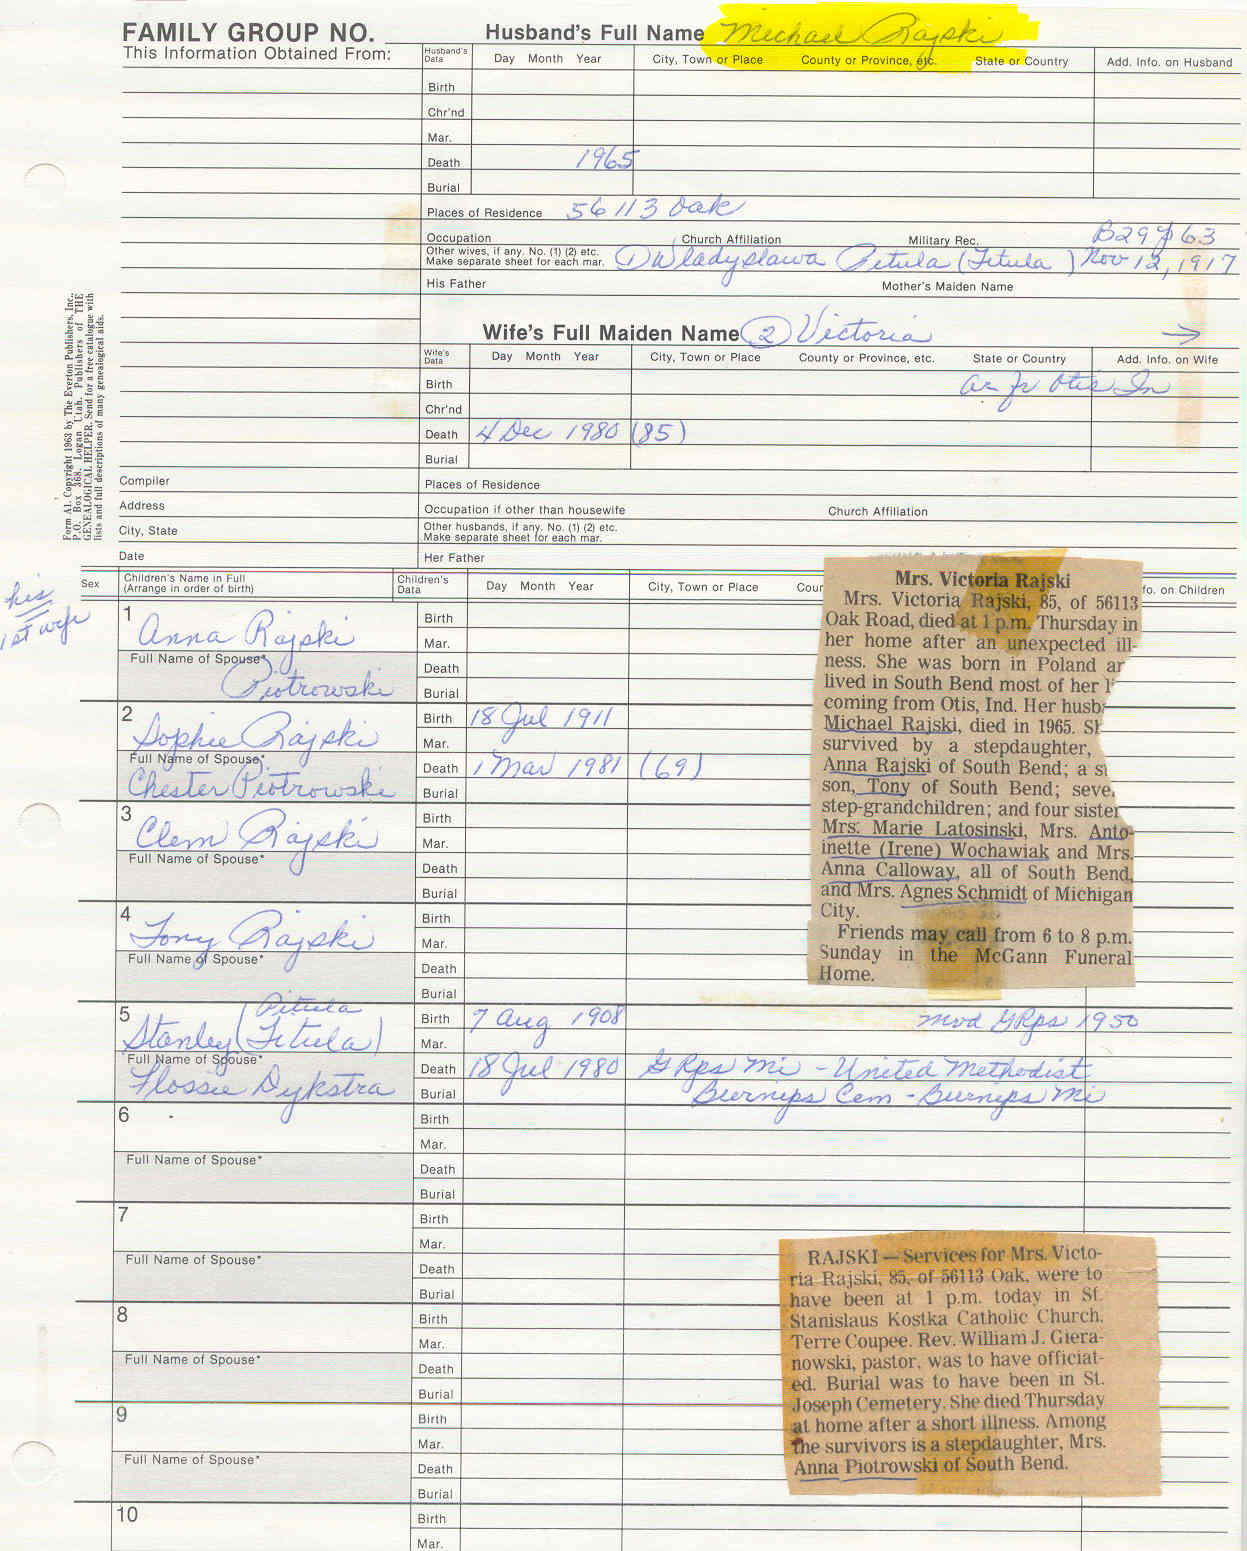 FAMILY GROUP NO.
Husband's Full Name Michael Rajski
This Information Obtained From:
Husband's Data Day Month Year City, Town or Place County or Province, etc. State or Country Add. Info. on Husband
Birth
Chr'nd
Mar.
Death 1965
Burial
Places of Residence 56113 Oak
Occupation Church Affiliation Military Rec. B29 p 63
Other wives, if any. No. (1) (2) etc.
Make separate sheet for each mar. (1) Wladyslawa Pitula (Titula) Nov 12, 1917
His Father Mother's Maiden Name
Wife's Full Maiden Name (2) Victoria →
Wife's Data Day Month Year City, Town or Place County or Province, etc. State or Country Add. Info. on Wife
Birth Otis In
Chr'nd
Death 4 Dec 1980 (85)
Burial
Compiler Places of Residence
Address Occupation if other than housewife Church Affiliation
City, State Other husbands, if any. No. (1) (2) etc.
Make separate sheet for each mar.
Date Her Father
Form A1. Copyright 1963 by The Everton Publishers, Inc.,
P.O. Box 368, Logan Utah. Publishers of THE
GENEALOGICAL HELPER. Send for a free catalogue with
lists and full descriptions of many genealogical aids.
Sex Children's Name in Full
(Arrange in order of birth) Children's Data Day Month Year City, Town or Place Coun fo. on Children
his
1st wife
1 Birth
Anna Rajski Mar.
Full Name of Spouse* Death
Piotrowski Burial
2 Birth 18 Jul 1911
Sophie Rajski Mar.
Full Name of Spouse* Death 1 Mar 1981 (69)
Chester Piotrowski Burial
3 Birth
Clem Rajski Mar.
Full Name of Spouse* Death
Burial
4 Birth
Tony Rajski Mar.
Full Name of Spouse* Death
Burial
5 Pitula Birth 7 Aug 1908 mvd GRps 1950
Stanley (Titula) Mar.
Full Name of Spouse* Death 18 Jul 1980 G Rps Mi - United Methodist
Flossie Dykstra Burial Burnips Cem - Burnips Mi
6 Birth
Mar.
Full Name of Spouse* Death
Burial
7 Birth
Mar.
Full Name of Spouse* Death
Burial
8 Birth
Mar.
Full Name of Spouse* Death
Burial
9 Birth
Mar.
Full Name of Spouse* Death
Burial
10 Birth
Mar.
Mrs. Victoria Rajski
Mrs. Victoria Rajski, 85, of 56113
Oak Road, died at 1 p.m. Thursday in
her home after an unexpected ill-
ness. She was born in Poland an
lived in South Bend most of her li
coming from Otis, Ind. Her husba
Michael Rajski, died in 1965. Sh
survived by a stepdaughter,
Anna Rajski of South Bend; a st
son, Tony of South Bend; seve
step-grandchildren; and four sister
Mrs. Marie Latosinski, Mrs. Anto-
inette (Irene) Wochawiak and Mrs.
Anna Calloway, all of South Bend,
and Mrs. Agnes Schmidt of Michigan
City.
Friends may call from 6 to 8 p.m.
Sunday in the McGann Funeral
Home.
RAJSKI — Services for Mrs. Victo-
ria Rajski, 85, of 56113 Oak, were to
have been at 1 p.m. today in St.
Stanislaus Kostka Catholic Church,
Terre Coupee. Rev. William J. Giera-
nowski, pastor, was to have officiat-
ed. Burial was to have been in St.
Joseph Cemetery. She died Thursday
at home after a short illness. Among
the survivors is a stepdaughter, Mrs.
Anna Piotrowski of South Bend.